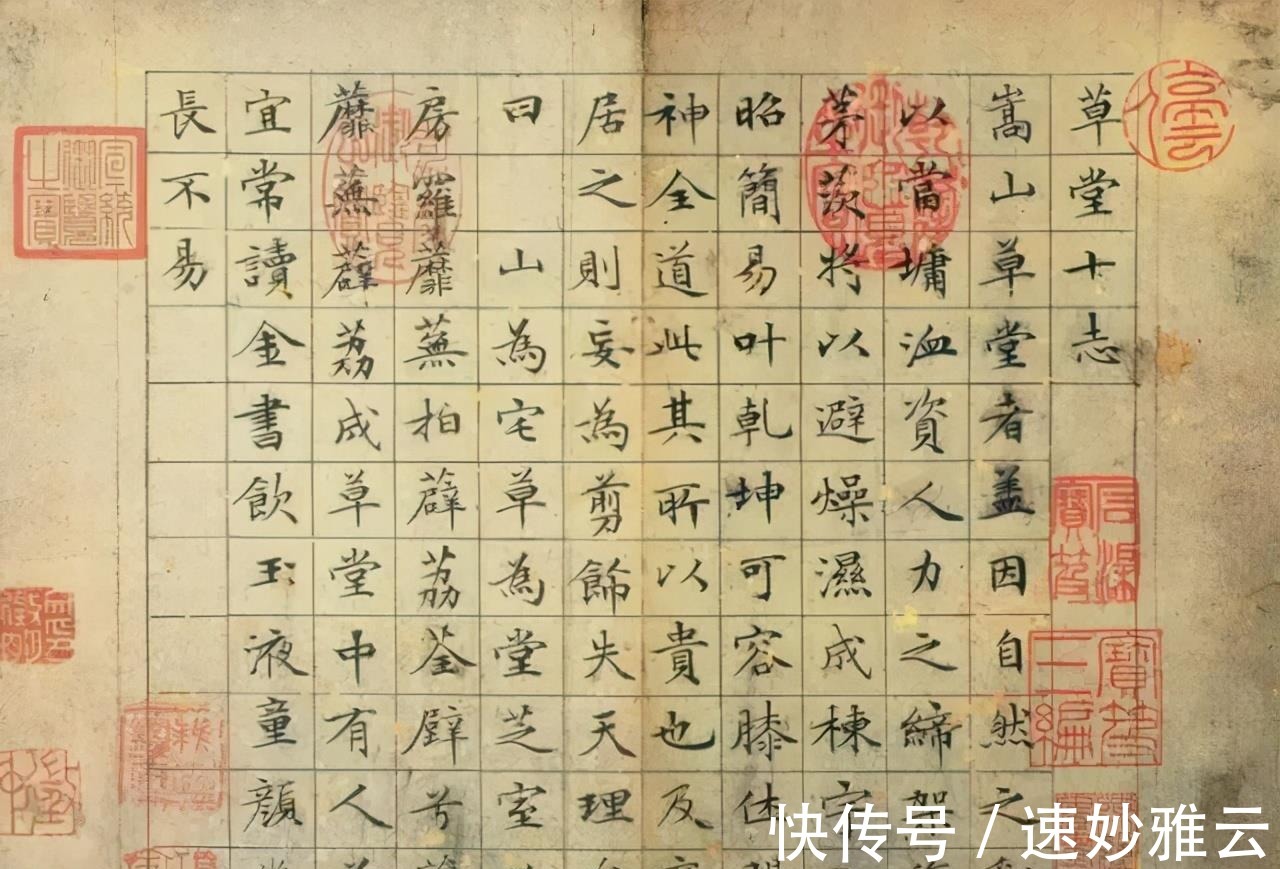 草堂十志
嵩山草堂者盖因自然之
以當墉洫資人力之締架
茅茨將以避燥濕成棟宇
昭簡易叶乾坤可容膝休
神全道此其所以貴也及
居之則妄為剪飾失天理
曰山為宅草為堂芝室
房羅蘼蕪拍薜荔荃壁兮
蘼蕪薜荔成草堂中有人
宜常讀金書飲玉液童顏
長不易
快传号 / 速妙雅云